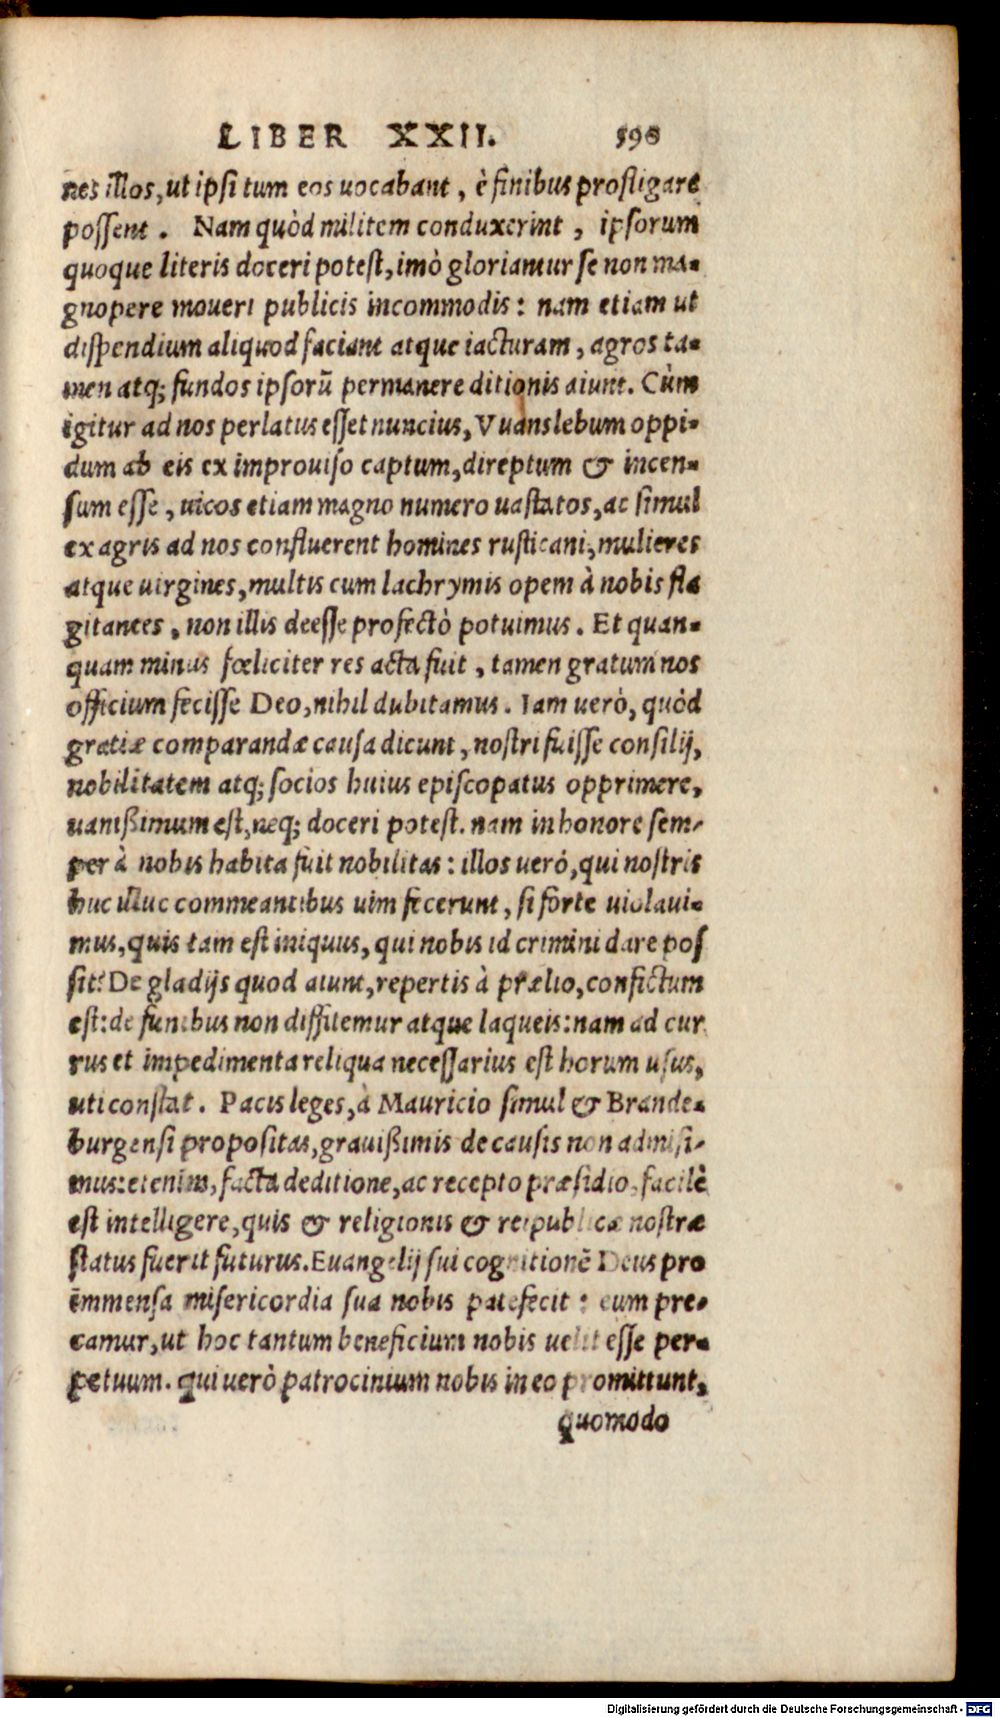 LIBER XXII. 598
nes illos, ut ipsi tum eos uocabant, è finibus profligare
possent. Nam quòd militem conduxerint, ipsorum
quoque literis doceri potest, imò gloriantur se non ma-
gnopere moueri publicis incommodis: nam etiam ut
dispendium aliquod faciant atque iacturam, agros ta-
men atq; fundos ipsorū permanere ditionis aiunt. Cùm
igitur ad nos perlatus esset nuncius, Vuanslebum oppi-
dum ab eis ex improuiso captum, direptum & incen-
sum esse, uicos etiam magno numero uastatos, ac simul
ex agris ad nos confluerent homines rusticani, mulieres
atque uirgines, multis cum lachrymis opem à nobis fla
gitantes, non illis deesse profectò potuimus. Et quan-
quam minus fœliciter res acta fuit, tamen gratum nos
officium fecisse Deo, nihil dubitamus. Iam uerò, quòd
gratiæ comparandæ causa dicunt, nostri fuisse consilij,
nobilitatem atq; socios huius episcopatus opprimere,
uanißimum est, neq; doceri potest. nam in honore sem-
per à nobis habita fuit nobilitas: illos uerò, qui nostris
huc illuc commeantibus uim fecerunt, si forte uiolaui-
mus, quis tam est iniquus, qui nobis id crimini dare pos
sit? De gladijs quod aiunt, repertis à prælio, confictum
est: de funibus non diffitemur atque laqueis: nam ad cur
rus et impedimenta reliqua necessarius est horum usus,
uti constat. Pacis leges, à Mauricio simul & Brande-
burgensi propositas, grauißimis de causis non admisi-
mus: etenim, facta deditione, ac recepto præsidio, facilè
est intelligere, quis & religionis & reipublicæ nostræ
status fuerit futurus. Euangelij sui cognitionē Deus pro
immensa misericordia sua nobis patefecit: eum pre-
camur, ut hoc tantum beneficium nobis uelit esse per-
petuum. qui uerò patrocinium nobis in eo promittunt,
quomodo
Digitalisierung gefördert durch die Deutsche Forschungsgemeinschaft - DFG